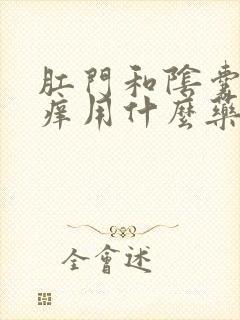 肛門和陰囊
癢用什麼藥
全會述